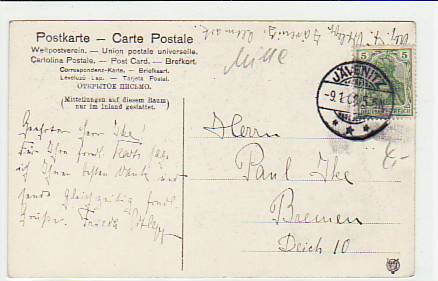 Postkarte – Carte Postale
Weltpostverein. – Union postale universelle.
Cartolina Postale. – Post Card. – Brefkort.
Correspondenz-Karte. – Briefkaart.
Levelező Lap. – Tarjeta Postal.
ОТКРЫТОЕ ПИСЬМО.
(Mitteilungen auf diesem Raum
nur im Inland gestattet.)
5 5
JÄVENITZ
-9.1.
Geehrter Herr Ike!
Für Ihre frdl. Karte sage
ich Ihnen besten Dank und
sende gleichzeitig frdl.
Grüße. Frieda
Herrn
Paul Ike
Bremen
Deich 10